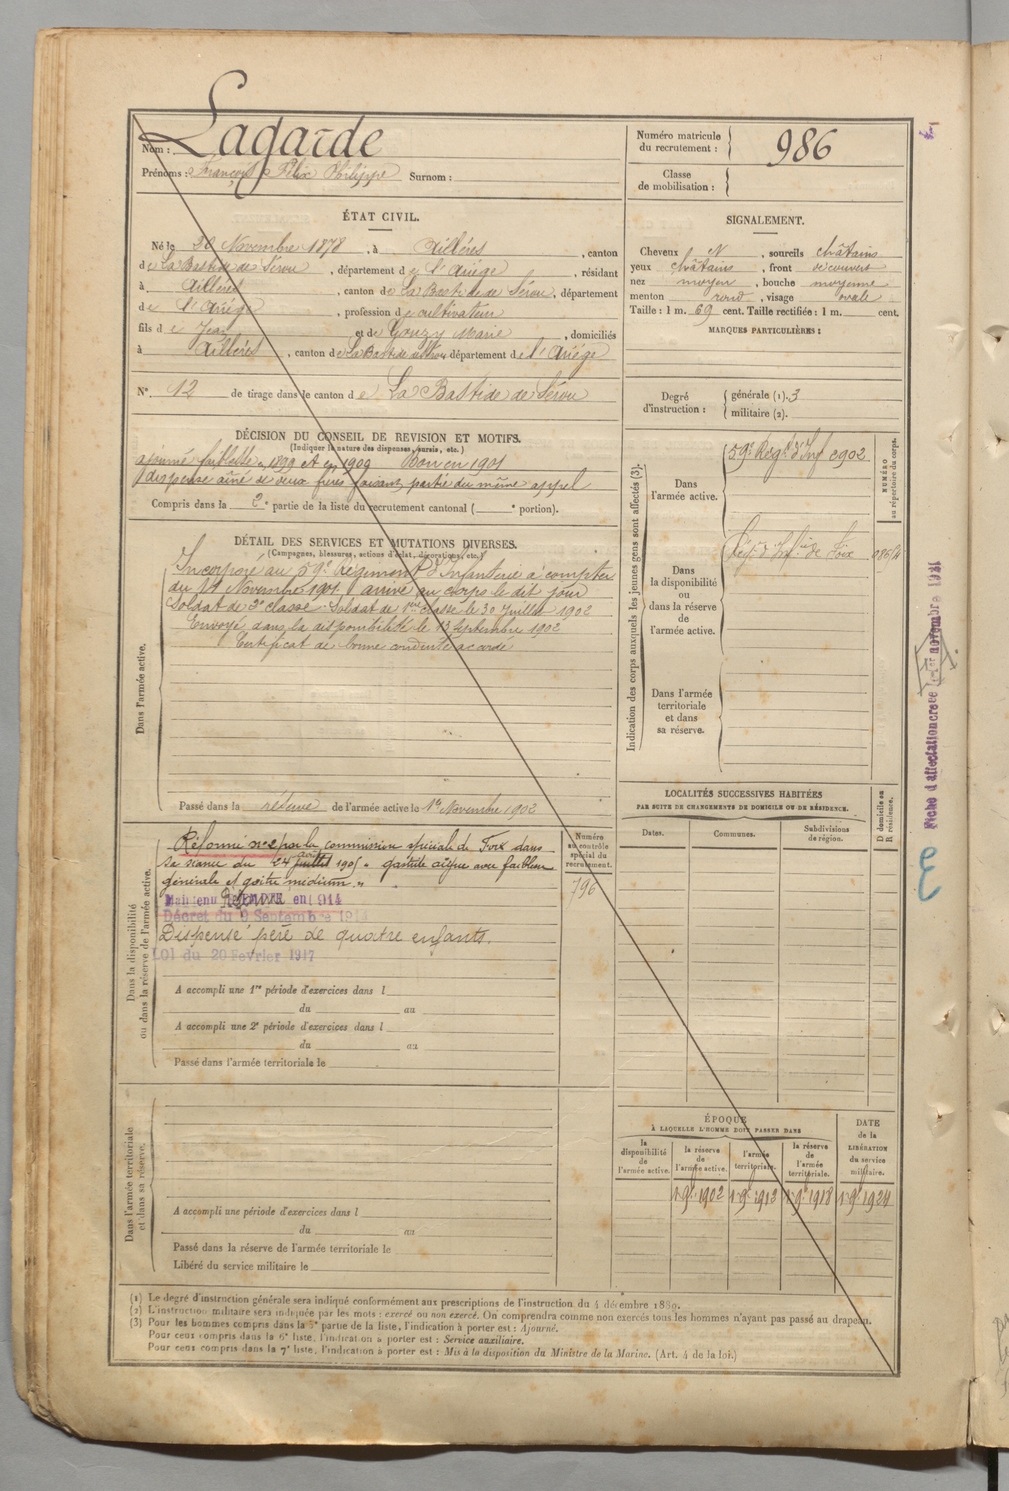 Nom : Lagarde
Prénoms : François Félix Philippe Surnom :
Numéro matricule du recrutement : 986
Classe de mobilisation :
ÉTAT CIVIL.
Né le 20 Novembre 1878, à Aillères, canton
de La Bastide de Sérou, département de l'Ariége, résidant
à Aillères, canton de La Bastide de Sérou, département
de l'Ariége, profession de cultivateur
fils de Jean et de Gouzy Marie, domiciliés
à Aillères, canton de La Bastide de Sérou département de l'Ariége
N° 12 de tirage dans le canton de La Bastide de Sérou
SIGNALEMENT.
Cheveux N, sourcils châtains
yeux châtains, front découvert
nez moyen, bouche moyenne
menton rond, visage ovale
Taille : 1 m. 69 cent. Taille rectifiée : 1 m. cent.
MARQUES PARTICULIÈRES :
Degré d'instruction : générale (1). 3
militaire (2).
DÉCISION DU CONSEIL DE REVISION ET MOTIFS.
(Indiquer la nature des dispenses, sursis, etc.)
ajourné faiblesse en 1899 et en 1900 Bon en 1901
dispensé aîné de deux frères faisant partie du même appel
Compris dans la 2e partie de la liste du recrutement cantonal ( e portion).
DÉTAIL DES SERVICES ET MUTATIONS DIVERSES.
(Campagnes, blessures, actions d'éclat, décorations, etc.)
Dans l'armée active.
Incorporé au 59e régiment d'Infanterie à compter
du 14 Novembre 1901. arrivé au corps le dit jour
Soldat de 2e classe. Soldat de 1re classe le 30 Juillet 1902
Envoyé dans la disponibilité le 13 Septembre 1902
Certificat de bonne conduite accordé
Passé dans la réserve de l'armée active le 1er Novembre 1902
Indication des corps auxquels les jeunes gens sont affectés (3).
NUMÉRO au répertoire du corps.
Dans l'armée active.
59e Régt d'Inf 6902
Dans la disponibilité ou dans la réserve de l'armée active.
Régt d'Infrie de Foix
Dans l'armée territoriale et dans sa réserve.
Dans la disponibilité ou dans la réserve de l'armée active.
Réformé n° 2 par la commission spéciale de Foix dans
sa séance du 24 avril juillet 1905 " gastrite aigue avec faiblesse
générale et goitre médium. "
Maintenu Réformé en 1914
Décret du 9 Septembre 1914
Dispensé père de quatre enfants.
Loi du 20 Février 1917
Numéro au contrôle spécial du recrutement.
796
A accompli une 1re période d'exercices dans l
du au
A accompli une 2e période d'exercices dans l
du au
Passé dans l'armée territoriale le
LOCALITÉS SUCCESSIVES HABITÉES
PAR SUITE DE CHANGEMENTS DE DOMICILE OU DE RÉSIDENCE.
Dates. Communes. Subdivisions de région. D domicile ou R résidence.
Dans l'armée territoriale et dans sa réserve.
A accompli une période d'exercices dans l
du au
Passé dans la réserve de l'armée territoriale le
Libéré du service militaire le
ÉPOQUE
À LAQUELLE L'HOMME DOIT PASSER DANS
la disponibilité de l'armée active. la réserve de l'armée active. l'armée territoriale. la réserve de l'armée territoriale. DATE de la LIBÉRATION du service militaire.
1 9bre 1902 1 9bre 1912 1 9bre 1918 1 9bre 1924
Fiche d'affectation créée 1er novembre 1931
(1) Le degré d'instruction générale sera indiqué conformément aux prescriptions de l'instruction du 4 décembre 1889.
(2) L'instruction militaire sera indiquée par les mots : exercé ou non exercé. On comprendra comme non exercés tous les hommes n'ayant pas passé au drapeau.
(3) Pour les hommes compris dans la 5e partie de la liste, l'indication à porter est : Ajourné.
Pour ceux compris dans la 6e liste, l'indication à porter est : Service auxiliaire.
Pour ceux compris dans la 7e liste, l'indication à porter est : Mis à la disposition du Ministre de la Marine. (Art. 4 de la loi.)